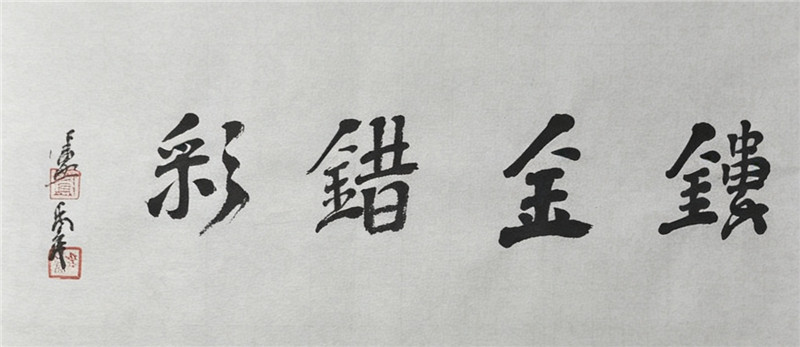 鏤金錯彩